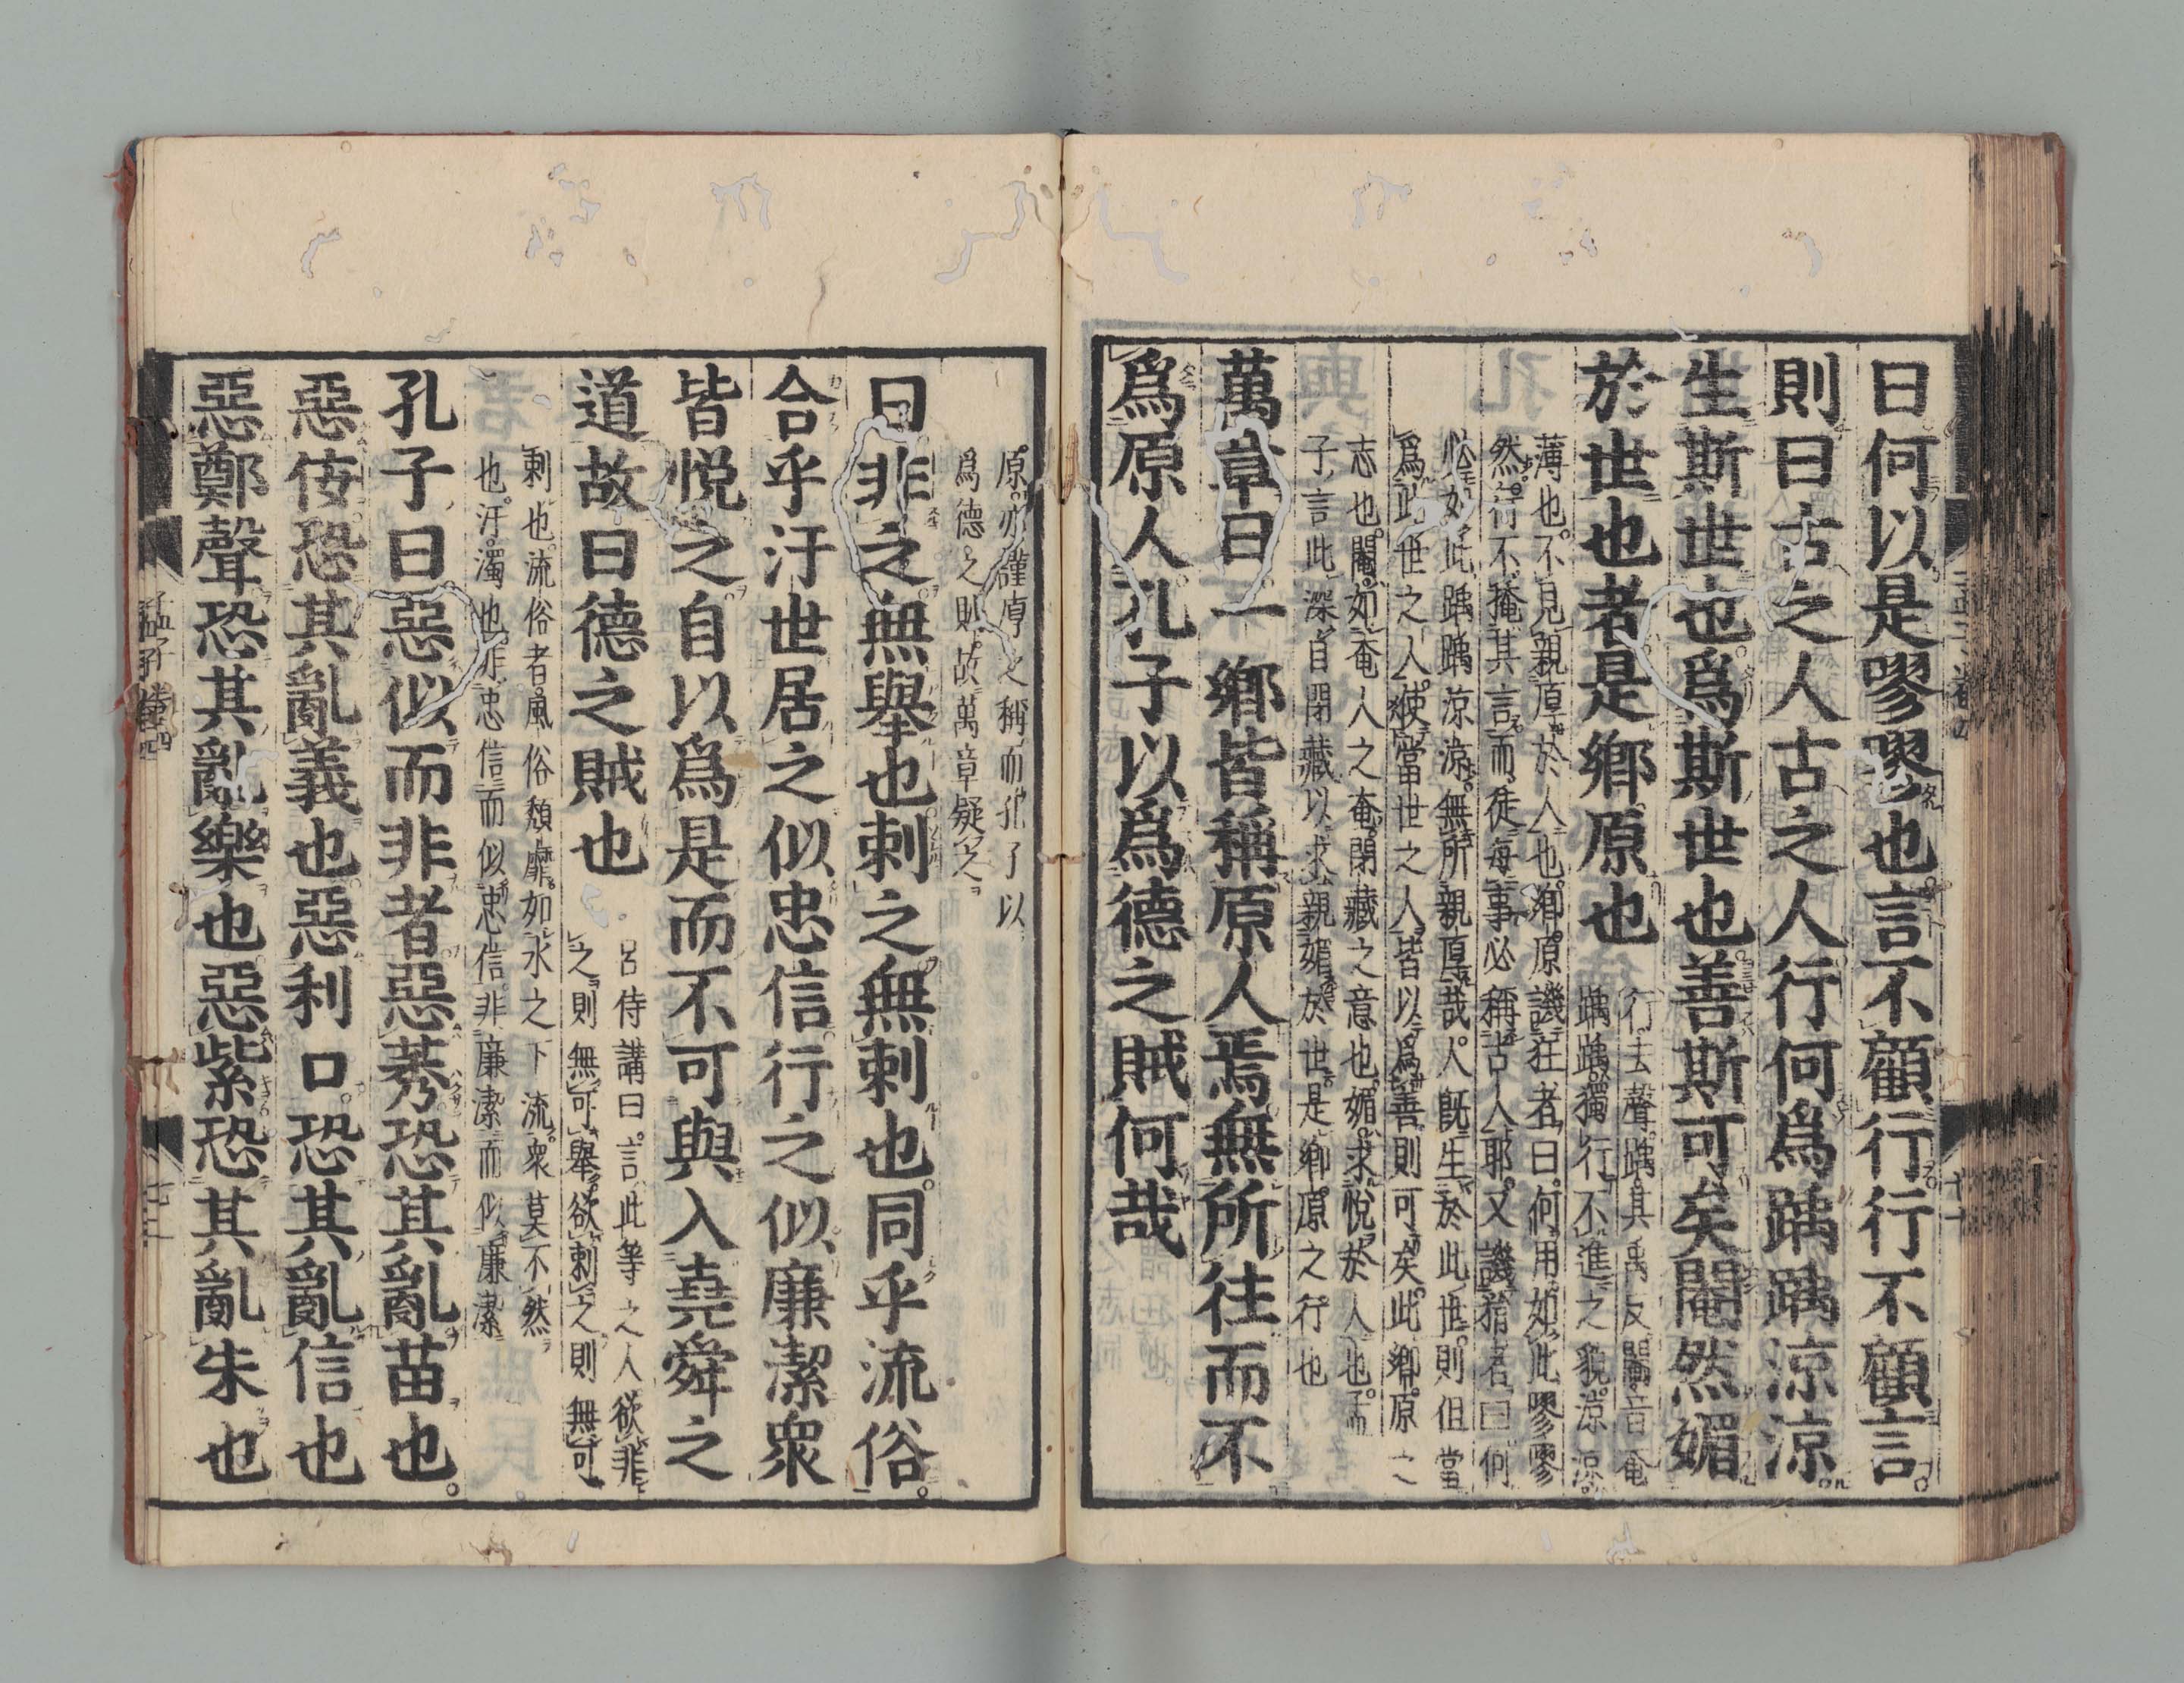 曰何以是嘐嘐也言不顧行行不顧言
則曰古之人古之人行何爲踽踽涼涼
生斯世也爲斯世也善斯可矣閹然媚
於世也者是鄉原也
行去聲踽其禹反閹音奄
踽踽獨行不進之貌涼涼
薄也不見親厚於人也鄉原譏狂者曰何用如此嘐嘐
然行不掩其言而徒每事必稱古人耶又譏狷者曰何
必如此踽踽涼涼無所親厚哉人既生於此世則但當
爲此世之人使當世之人皆以爲善則可矣此鄉原之
志也閹如奄人之奄閉藏之意也媚求悅於人也孟
子言此深自閉藏以求親媚於世是鄉原之行也
萬章曰一鄉皆稱原人焉無所往而不
爲原人孔子以爲德之賊何哉
原亦謹厚之稱而孔子以
爲德之賊故萬章疑之
曰非之無舉也刺之無刺也同乎流俗
合乎汙世居之似忠信行之似廉潔衆
皆悅之自以爲是而不可與入堯舜之
道故曰德之賊也
呂侍講曰言此等之人欲非
之則無可舉欲刺之則無可
刺也流俗者風俗頹靡如水之下流衆莫不然
也汙濁也非忠信而似忠信非廉潔而似廉潔
孔子曰惡似而非者惡莠恐其亂苗也
惡佞恐其亂義也惡利口恐其亂信也
惡鄭聲恐其亂樂也惡紫恐其亂朱也